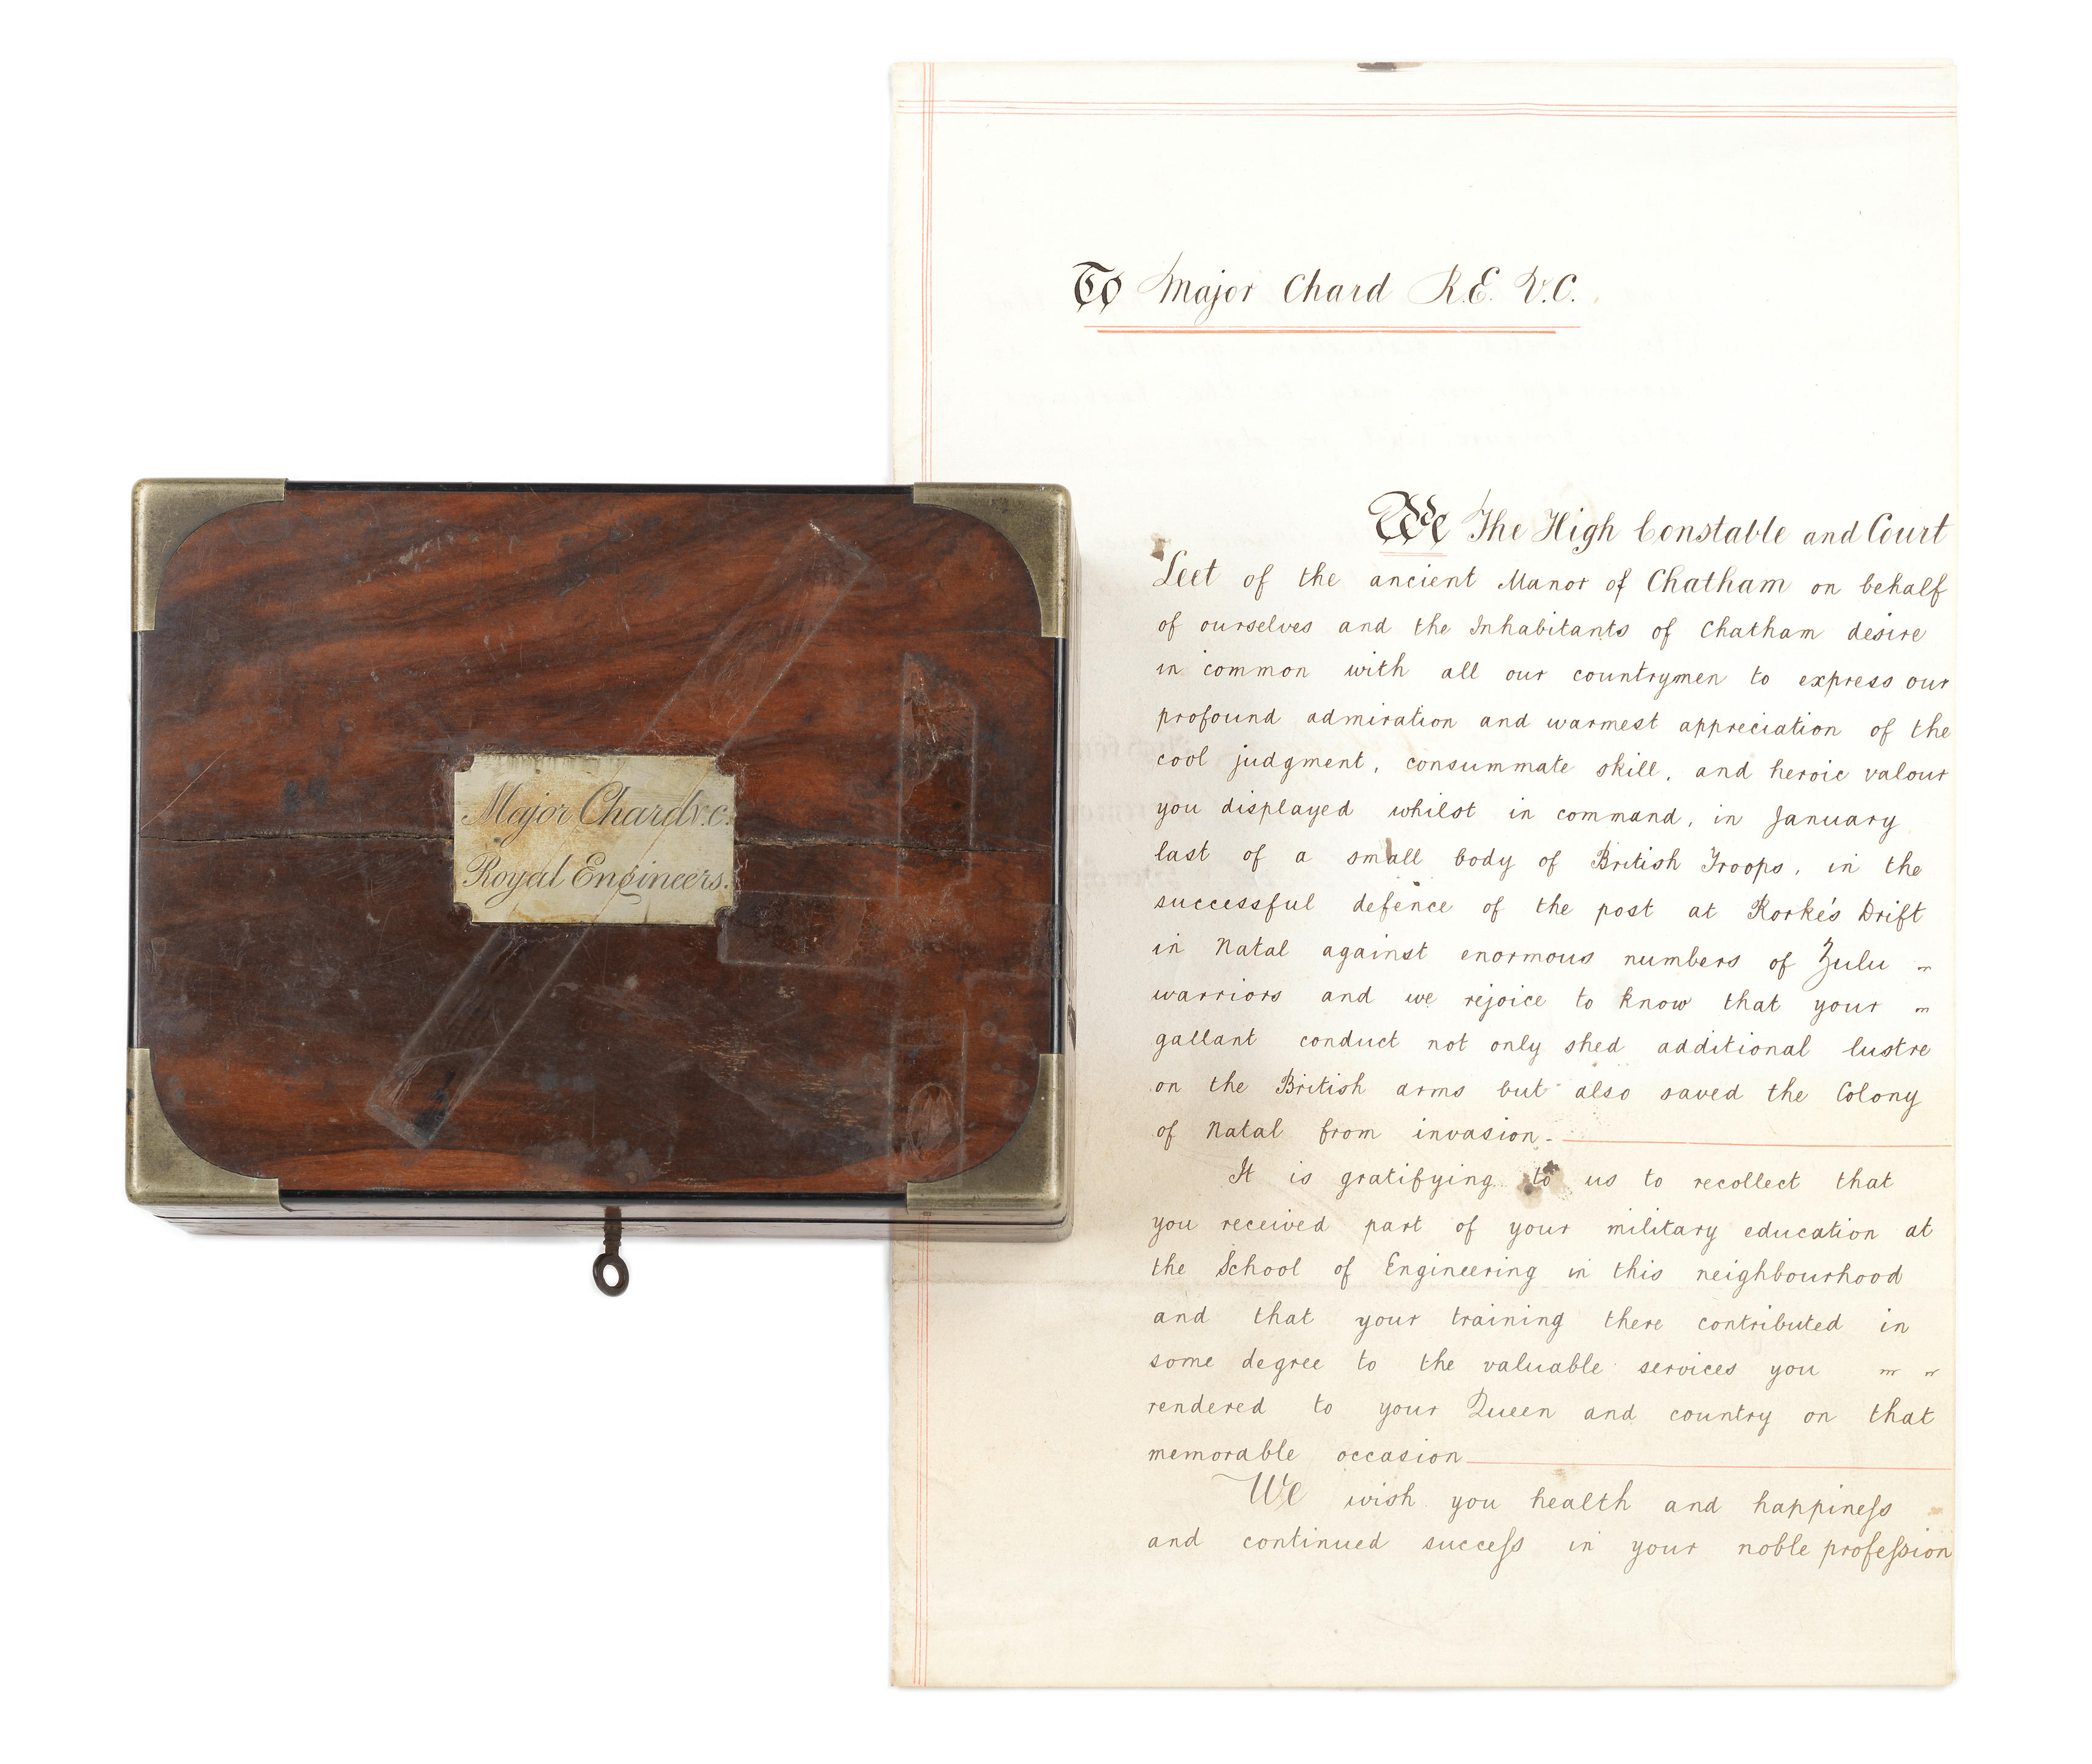 Major Chard V.C.
Royal Engineers.
To Major Chard R.E. V.C.
We The High Constable and Court
Leet of the ancient Manor of Chatham on behalf
of ourselves and the Inhabitants of Chatham desire
in common with all our countrymen to express our
profound admiration and warmest appreciation of the
cool judgment, consummate skill, and heroic valour
you displayed whilst in command, in January
last of a small body of British Troops, in the
successful defence of the post at Rorke's Drift
in Natal against enormous numbers of Zulu
warriors and we rejoice to know that your
gallant conduct not only shed additional lustre
on the British arms but also saved the Colony
of Natal from invasion.
It is gratifying to us to recollect that
you received part of your military education at
the School of Engineering in this neighbourhood
and that your training there contributed in
some degree to the valuable services you
rendered to your Queen and country on that
memorable occasion
We wish you health and happineſs
and continued succeſs in your noble profeſsion